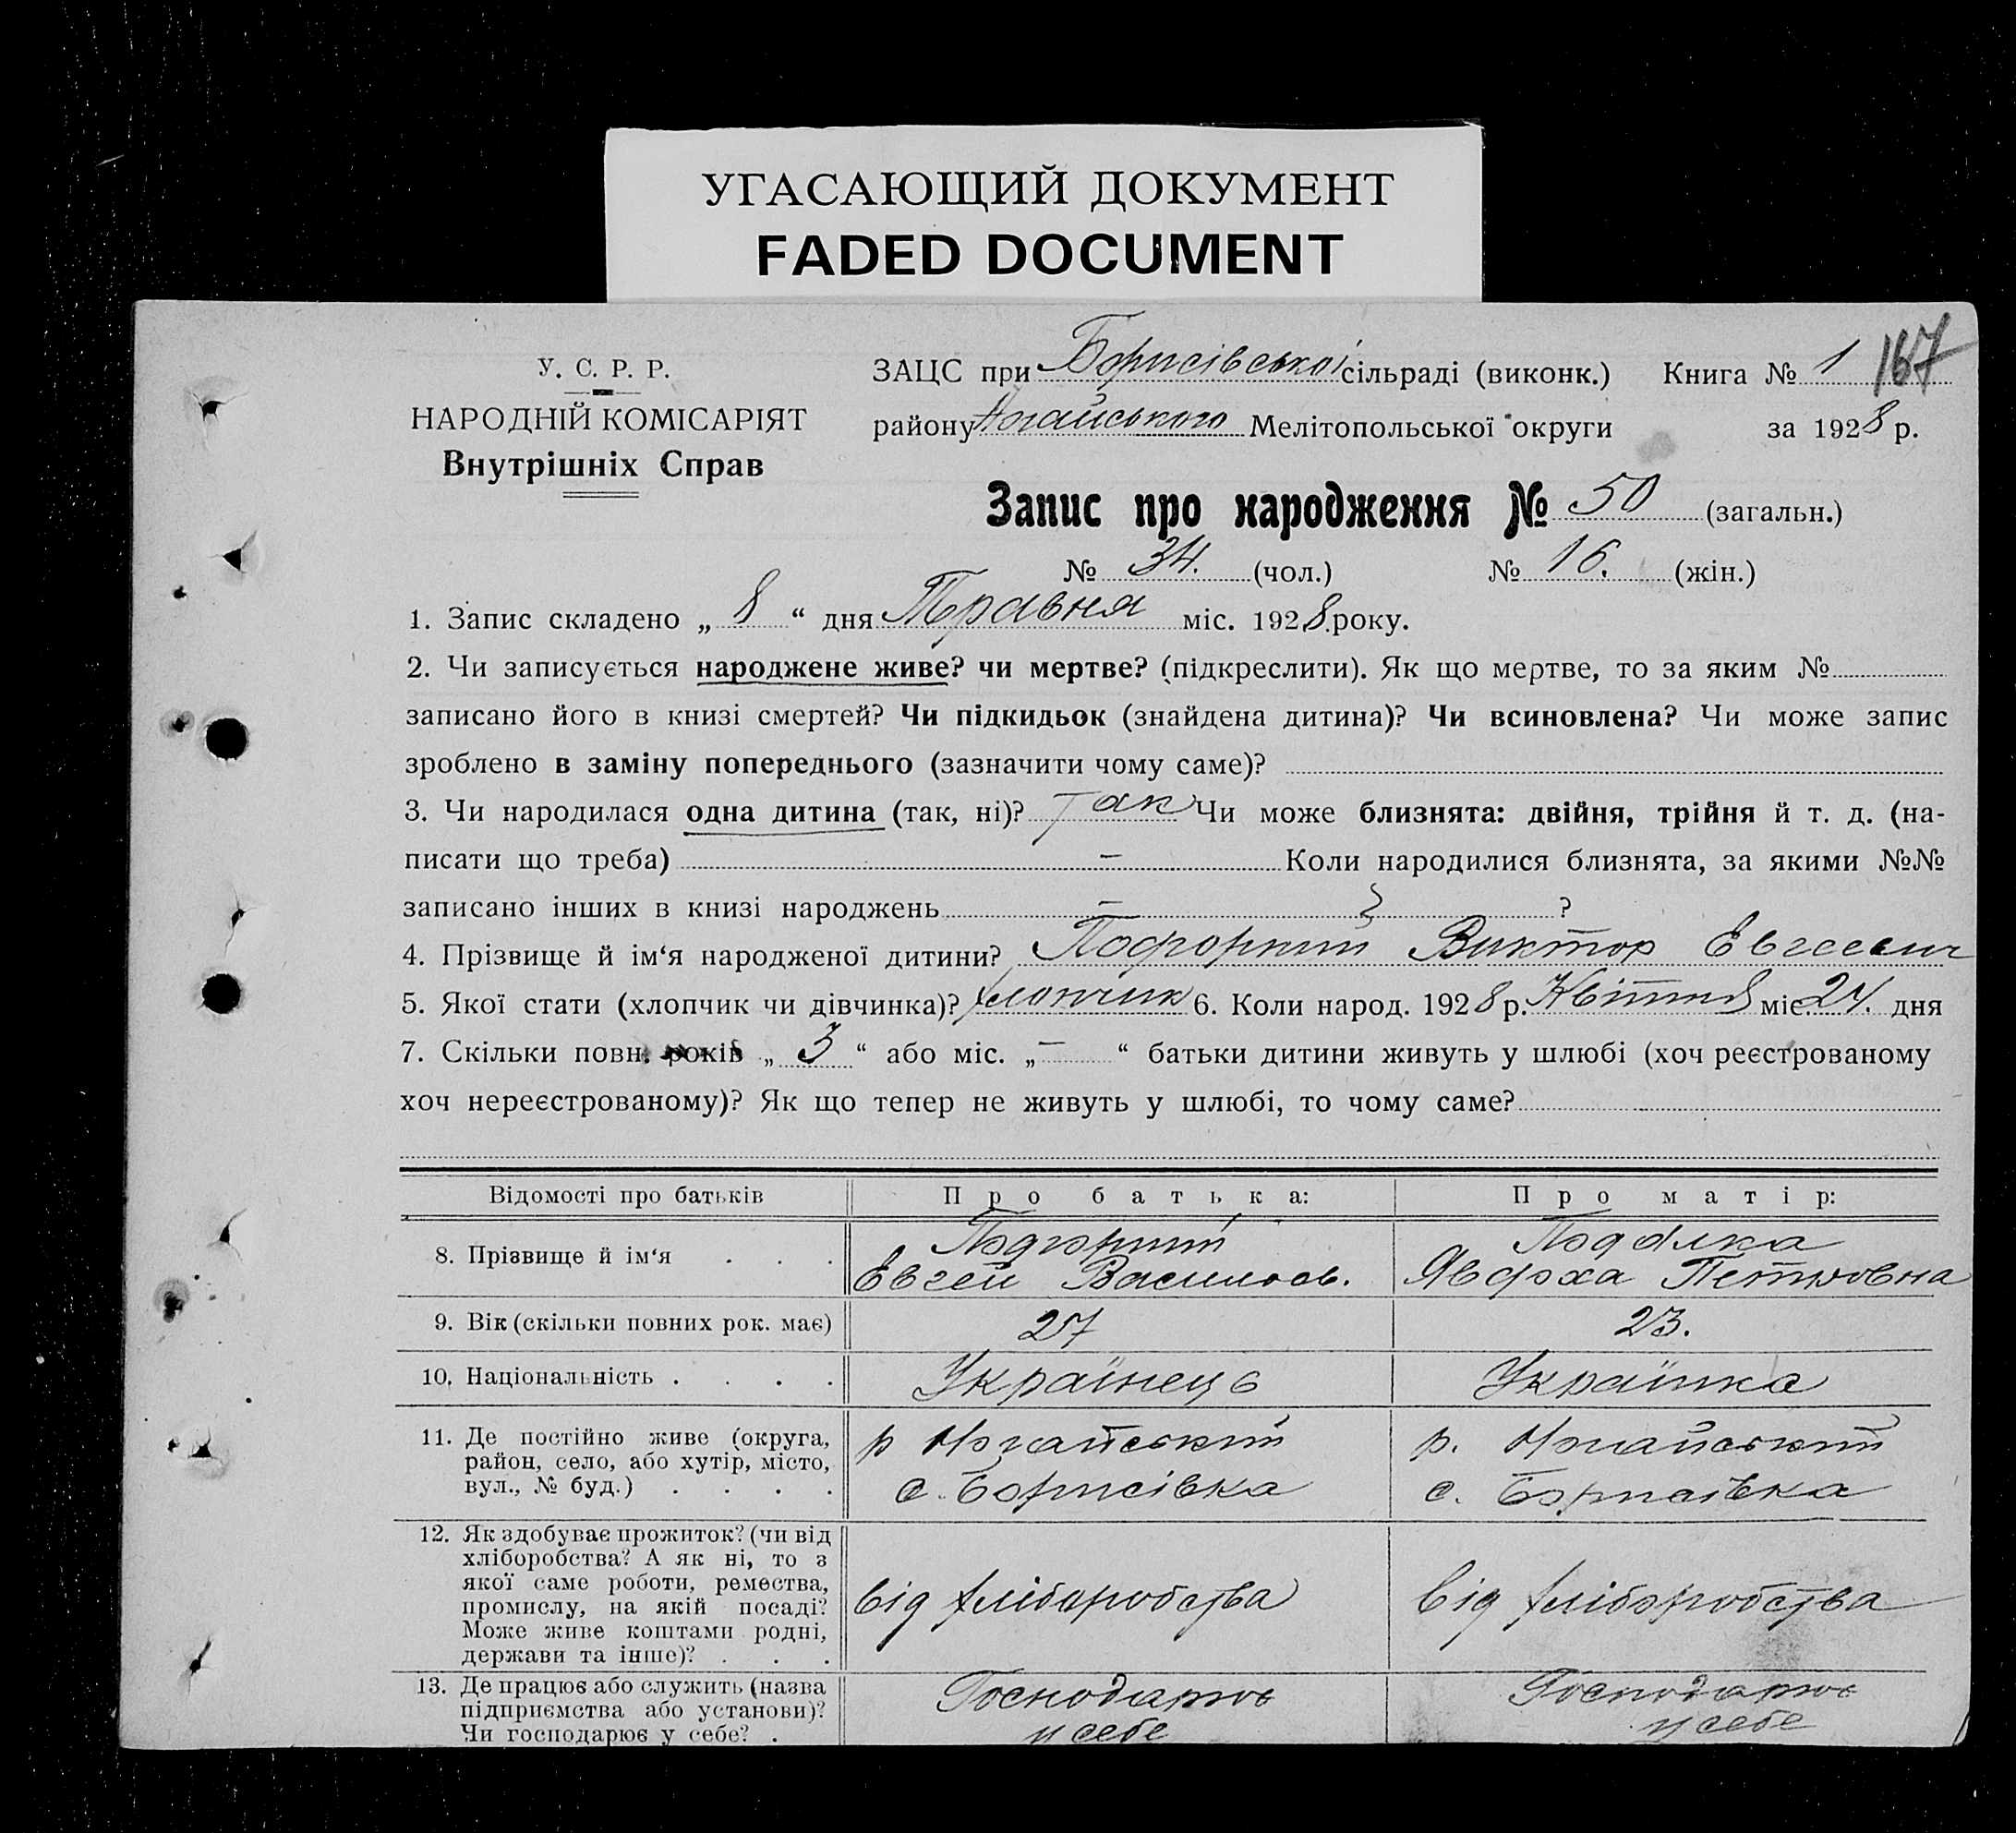 УГАСАЮЩИЙ ДОКУМЕНТ
FADED DOCUMENT
У. С. Р. Р.
НАРОДНІЙ КОМІСАРІЯТ
Внутрішніх Справ
ЗАЦС при Борисівської сільраді (виконк.) Книга № 1 167
району Ногайського Мелітопольської округи за 1928 р.
Запис про народження № 50 (загальн.)
№ 34. (чол.) № 16. (жін.)
1. Запис складено „ 8 “ дня Травня міс. 1928 року.
2. Чи записується народжене живе? чи мертве? (підкреслити). Як що мертве, то за яким №
записано його в книзі смертей? Чи підкидьок (знайдена дитина)? Чи всиновлена? Чи може запис
зроблено в заміну попереднього (зазначити чому саме)?
3. Чи народилася одна дитина (так, ні)? Так Чи може близнята: двійня, трійня й т. д. (на-
писати що треба) – Коли народилися близнята, за якими №№
записано інших в книзі народжень – ?
4. Прізвище й ім‘я народженої дитини? Подгорний Виктор Евгеевич
5. Якої стати (хлопчик чи дівчинка)? хлопчик 6. Коли народ. 1928 р. Квітня міс. 24. дня
7. Скільки повн. років „ 3 “ або міс. „ – “ батьки дитини живуть у шлюбі (хоч реєстрованому
хоч нереєстрованому)? Як що тепер не живуть у шлюбі, то чому саме?
Відомості про батьків Про батька: Про матір:
8. Прізвище й ім‘я . . . Подгорний
Евгей Васильов.
Явдоха Петровна
9. Вік (скільки повних рок. має) 27 23.
10. Національність . . . . Українець Українка
11. Де постійно живе (округа,
район, село, або хутір, місто,
вул., № буд.) . . . .
р Ногайський
с. Борисівка
р. Ногайський
с. Борисівка
12. Як здобуває прожиток? (чи від
хліборобства? А як ні, то з
якої саме роботи, ремества,
промислу, на якій посаді?
Може живе коштами родні,
держави та інше)? . . .
від хліборобства
від хліборобства
13. Де працює або служить (назва
підприємства або установи)?
Чи господарює у себе? .
Господарює
у себе
Господарює
у себе